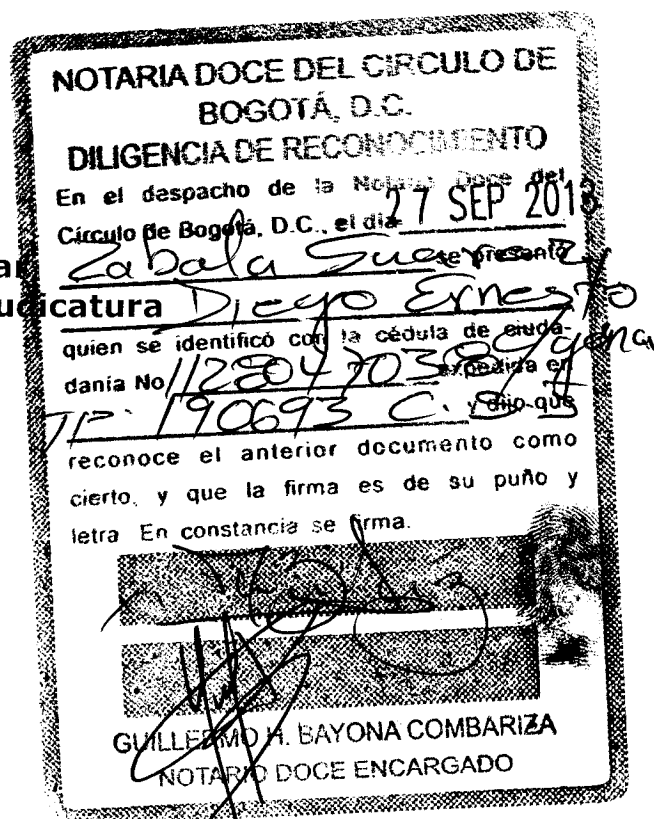 NOTARIA DOCE DEL CIRCULO DE
BOGOTÁ, D.C.
DILIGENCIA DE RECONOCIMIENTO
En el despacho de la Notaria Doce del
Círculo de Bogotá, D.C., el día 27 SEP 2013
Zabala Suarez se presentó
udicatura Diego Ernesto
quien se identificó con la cédula de ciuda-
danía No expedida en
TP. 190693 C.S.J y dijo que
reconoce el anterior documento como
cierto, y que la firma es de su puño y
letra En constancia se firma.
GUILLERMO H. BAYONA COMBARIZA
NOTARIO DOCE ENCARGADO